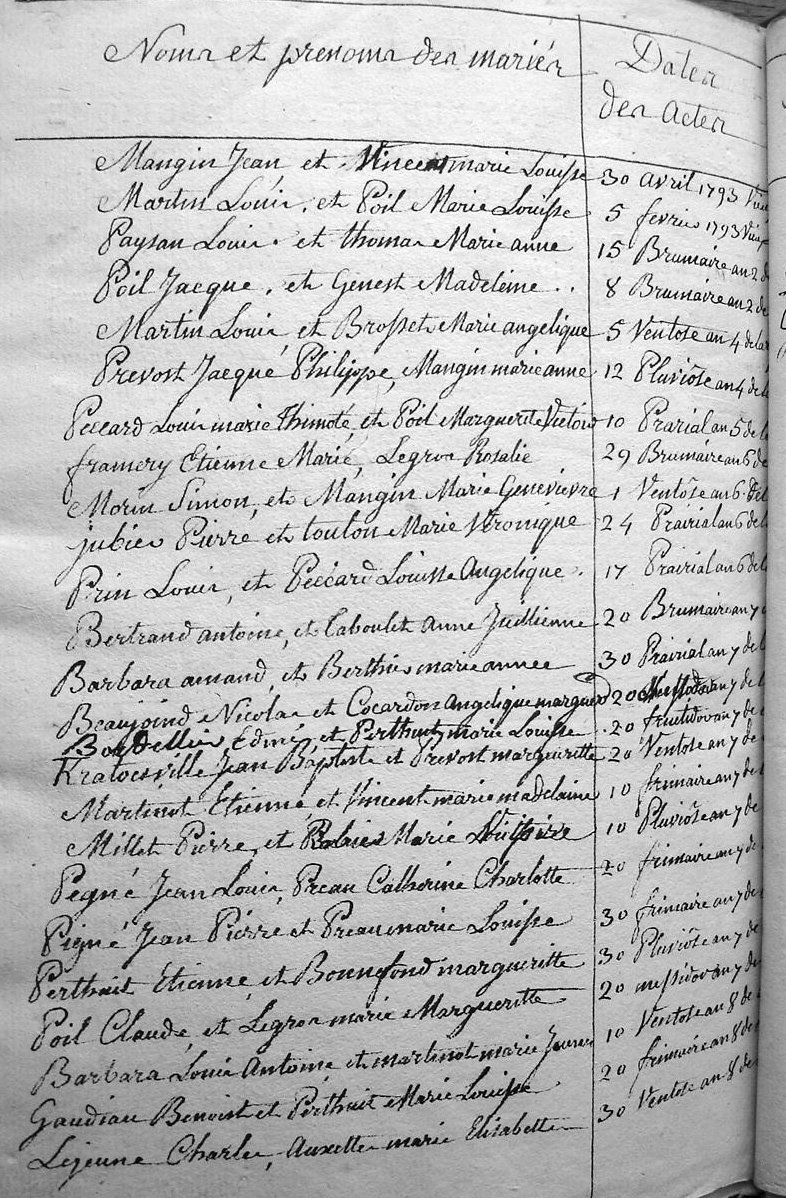 Noms et prenoms des mariés
Dates
des actes
Mangin Jean, et Vincent marie Louisse 30 avril 1793
Martin Louis, et Poil Marie Louisse 5 fevrier 1793
Paysan Louis, et thomas Marie anne 15 Brumaire an 2 de
Poil Jacque, et Genest Madeleine .. 8 Brumaire an 2 de
Martin Louis, et Brosset Marie angelique 5 Ventose an 4 de la
Prevost Jacque Philippe, Mangin marie anne 12 Pluviôse an 4 de la
Peccard Louis marie Thimoté, et Poil Marguerite Victoire 10 Prairial an 5 de la
framery Etienne Marie, Legros Rosalie 29 Brumaire an 6 de
Morin Simon, et Mangin Marie Genevievre 1 Ventôse an 6 de
jubier Pierre et toulon Marie Véronique 24 Prairial an 6 de la
Prin Louis, et Peccard Louisse Angelique. 17 Prairial an 6 de la
Bertrand antoine, et Taboulet Anne Juillienne 20 Brumaire an 7
Barbara amand, et Berthier marie annee 30 Prairial an 7 de
Beaujoind Nicolas et Cocardon Angelique 20 an 7 de
Edmé, et Perthuit marie Louisse .. 20 fructidor an 7 de
Jean Baptiste et Prevost margueritte 20 Ventose an 7 de
Martinot Etienne, et Vincent marie madelaine 10 frimaire an 7 de
Millet Pierre, et Marie 10 Pluviôse an 7 de
Pegné Jean Louis, Preau Catherine Charlotte 20 frimaire an 7 de
Pigné Jean Pierre et Preau marie Louisse 30 frimaire an 7 de
Perthuit Etienne, et Bonnefond margueritte 30 Pluviôse an 7 de
Poil Claude, et Legros marie Margueritte 20 messidor an 7 de
Barbara Louis Antoine, et martinot marie 10 Ventose an 8 de
Gaudiau Benoist et Perthuit Marie Louisse 20 frimaire an 8 de
Lejeune Charles, Auxette marie Elisabette 30 Ventose an 8 de